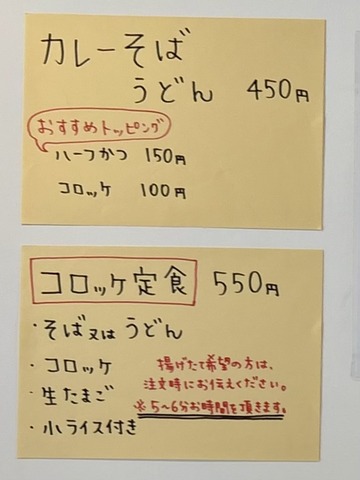 カレーそば
うどん 450円
おすすめトッピング
ハーフかつ 150円
コロッケ 100円
コロッケ定食 550円
・そば又はうどん
・コロッケ
・生たまご
・小ライス付き
揚げたて希望の方は、
注文時にお伝えください。
※5~6分お時間を頂きます。